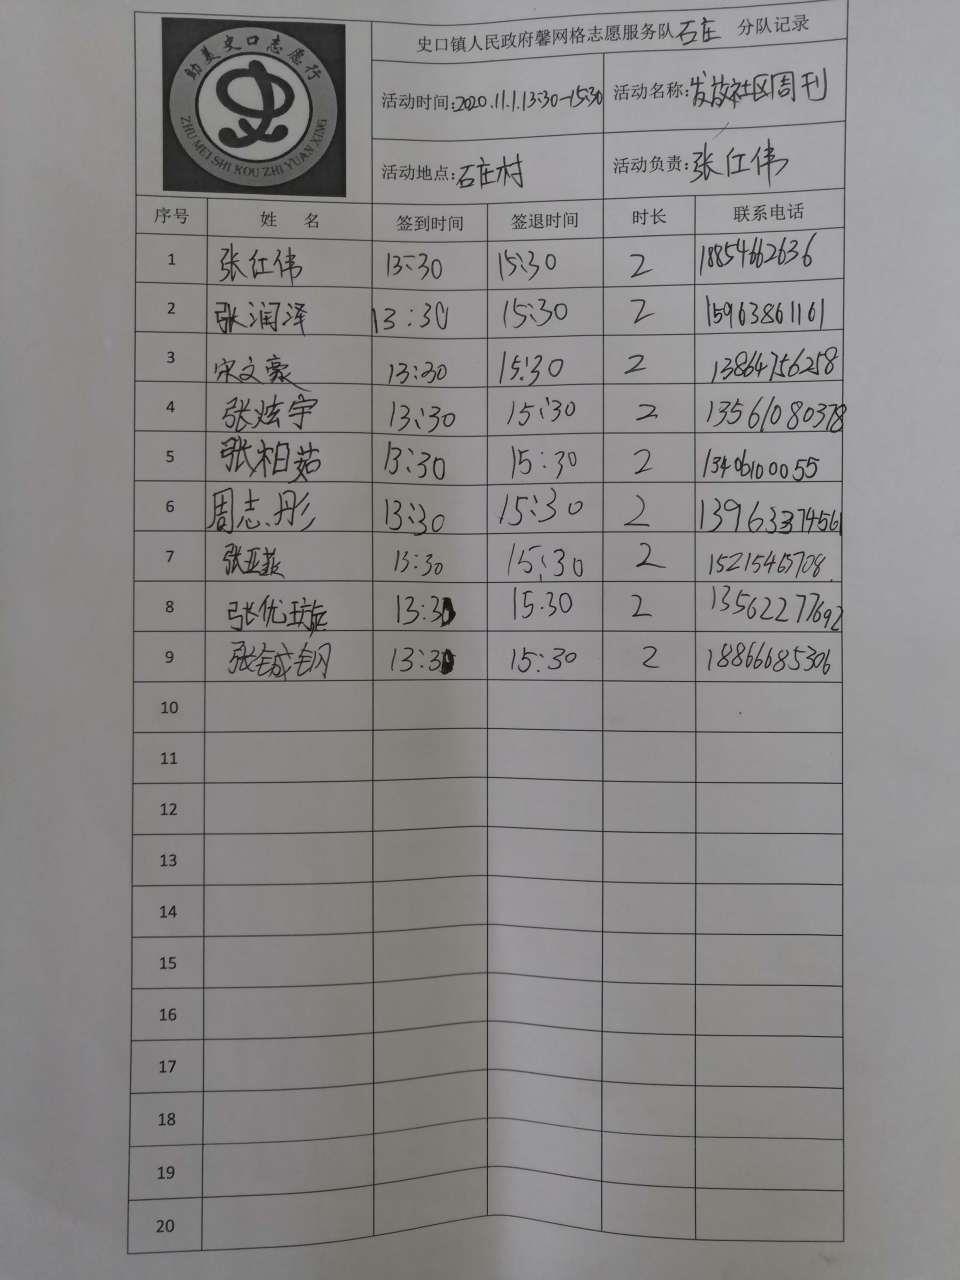 助美史口志愿行
ZHU MEI SHI KOU ZHI YUAN XING
史口镇人民政府馨网格志愿服务队石庄 分队记录
活动时间:2020.11.1.13:30-15:30 活动名称:发放社区周刊
活动地点:石庄村 活动负责:张红伟
序号 姓 名 签到时间 签退时间 时长 联系电话
1 张红伟 13:30 15:30 2 18854662636
2 张润泽 13:30 15:30 2 15963861161
3 宋文豪 13:30 15:30 2 13864756258
4 张炫宇 13:30 15:30 2 13561080378
5 张相茹 13:30 15:30 2 13406100055
6 周志彤 13:30 15:30 2 13963374561
7 张亚菲 13:30 15:30 2 15215465708.
8 张优璇 13:30 15.30 2 13562277692
9 张钺钢 13:30 15:30 2 18866685306
10
11
12
13
14
15
16
17
18
19
20